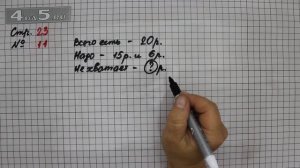 4 А 5
Стр. 23
№ 11
Всего есть – 20р.
Надо – 15р. и 6р.
Не хватает – ? р.